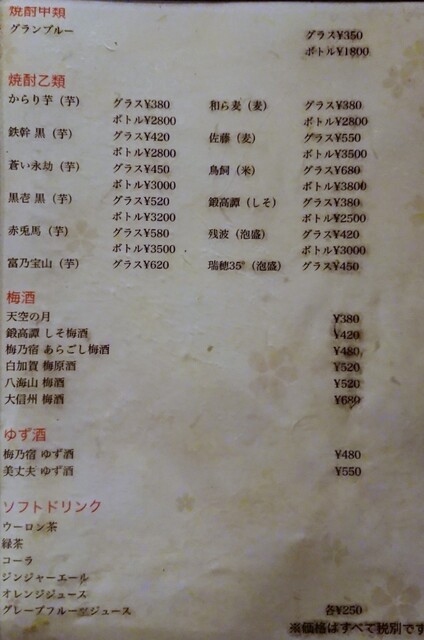 焼酎甲類
グランブルー グラス¥350
ボトル¥1800
焼酎乙類
からり芋（芋） グラス¥380 和ら麦（麦） グラス¥380
ボトル¥2800 ボトル¥2800
鉄幹 黒（芋） グラス¥420 佐藤（麦） グラス¥550
ボトル¥2800 ボトル¥3500
蒼い永劫（芋） グラス¥450 鳥飼（米） グラス¥680
ボトル¥3000 ボトル¥3800
黒壱 黒（芋） グラス¥520 鍛高譚（しそ） グラス¥380
ボトル¥3200 ボトル¥2500
赤兎馬（芋） グラス¥580 残波（泡盛） グラス¥420
ボトル¥3500 ボトル¥3000
富乃宝山（芋） グラス¥620 瑞穂35°（泡盛） グラス¥450
梅酒
天空の月 ¥380
鍛高譚 しそ梅酒 ¥420
梅乃宿 あらごし梅酒 ¥480
白加賀 梅原酒 ¥520
八海山 梅酒 ¥520
大信州 梅酒 ¥680
ゆず酒
梅乃宿 ゆず酒 ¥480
美丈夫 ゆず酒 ¥550
ソフトドリンク
ウーロン茶
緑茶
コーラ
ジンジャーエール
オレンジジュース
グレープフルーツジュース 各¥250
※価格はすべて税別です